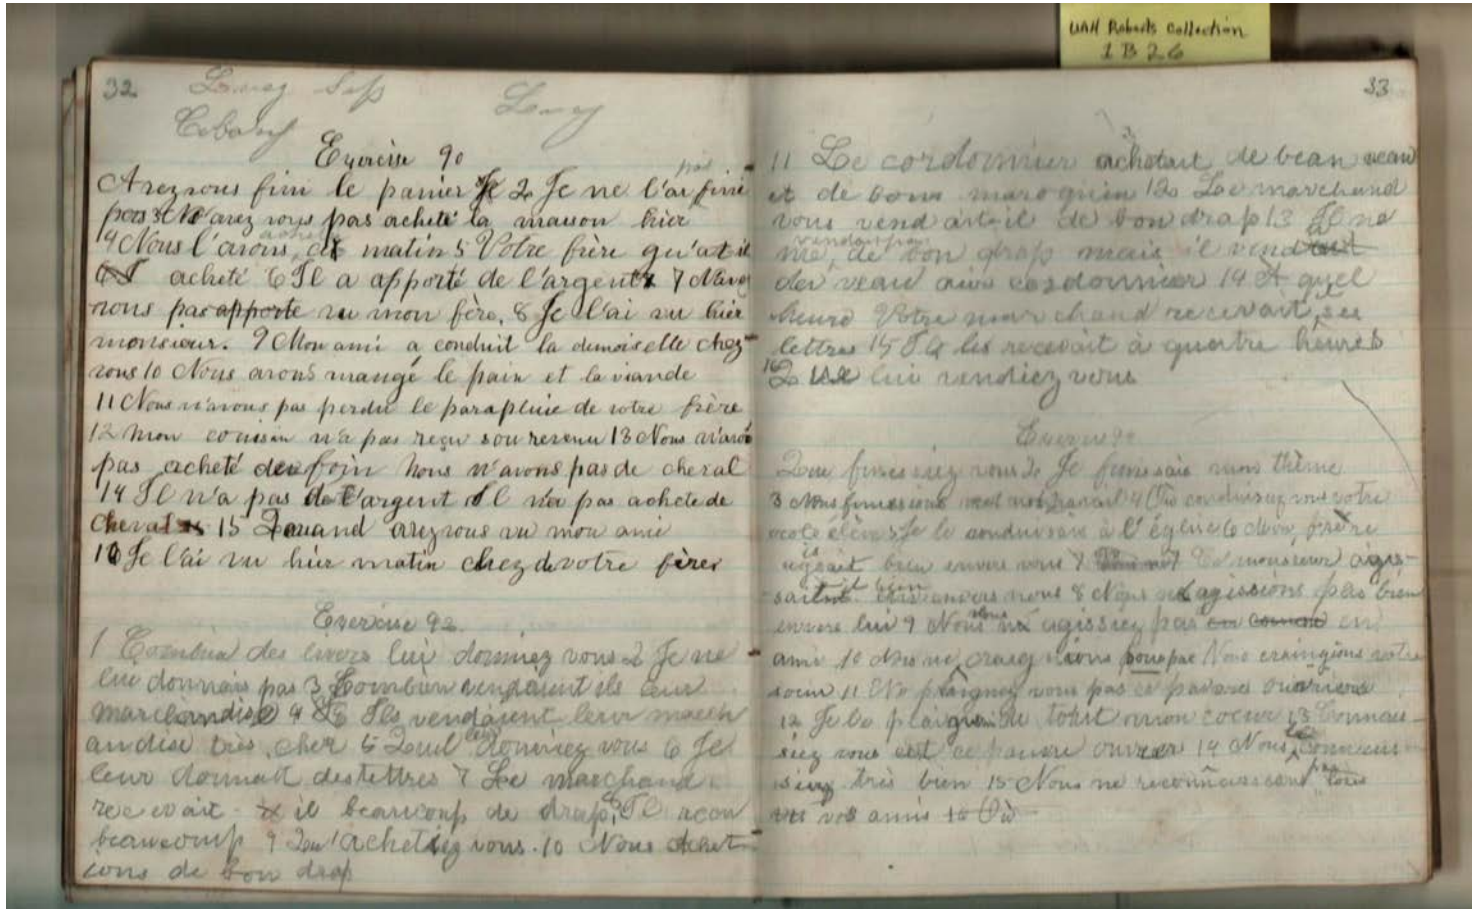 UAH Roberts Collection
1 B 26
32
Lucy
Exercise 90
Avez vous fini le panier 2 Je ne l'ai pas fini
pas 3 N'avez vous pas acheté la maison hier
4 Nous l'avons acheté matin 5 Votre frère qu'a t il
acheté 6 Il a apporté de l'argent 7 N'avez
vous pas apporte vu mon fère, 8 Je l'ai vu hier
monsieur. 9 Mon ami a conduit la demoiselle chez
vous 10 Nous avons mangé le pain et la viande
11 Nous n'avons pas perdu le parapluie de votre frère
12 mon cousin n'a pas reçu son revenu 13 Nous n'avons
pas acheté foin nous n'avons pas de cheval
14 Il n'a pas de l'argent Il n'a pas achete de
cheval 15 Quand avez vous vu mon ami
16 Je l'ai vu hier matin chez de votre fères
Exercise 92
1 Combien des livers lui donniez vous 2 Je ne
lui donnais pas 3 Combien vendaient ils leur
marchandise 4 Ils vendaient leur march
andise très cher 5 leur donniez vous 6 Je
leur donnait des lettres 7 Le marchand
recevait il beaucoup de drap 8 Il
beaucoup 9 Qu'achetiez vous. 10 Nous achet
ions de bon drap
33
11 Le cordonnier achetait de beau veau
et de bons maroquin 12 Le marchand
vous vendait-il de bon drap 13 Il ne
me vendait pas de bon drap mais il vend
du veau aux cordonnier 14 A quel
heure Votre marchand recevait ses
lettres 15 Il les recevait à quartre heures
16 lui vendiez vous
Exercise
Que finissiez vous 2 Je finissais mon thème
3 Nous finissions travail 4 Où conduisiez vous votre
5 Je le conduisais à l'église 6 frère
agissait bien envers vous 7 Ce monsieur agis-
sait il bien envers nous 8 Nous agissions pas bien
envers lui 9 Nous agissiez pas en
ami 10 ne craignions pas Nous craignions votre
soeur 11 Ne plaignez vous pas ce pauvre ouvriers
12 Je le plaignais de tout mon coeur 13 Connais-
siez vous ce pauvre ouvrier 14 Nous le connais
très bien 15 Nous ne reconnaissions pas tous
vos amis 16 Où